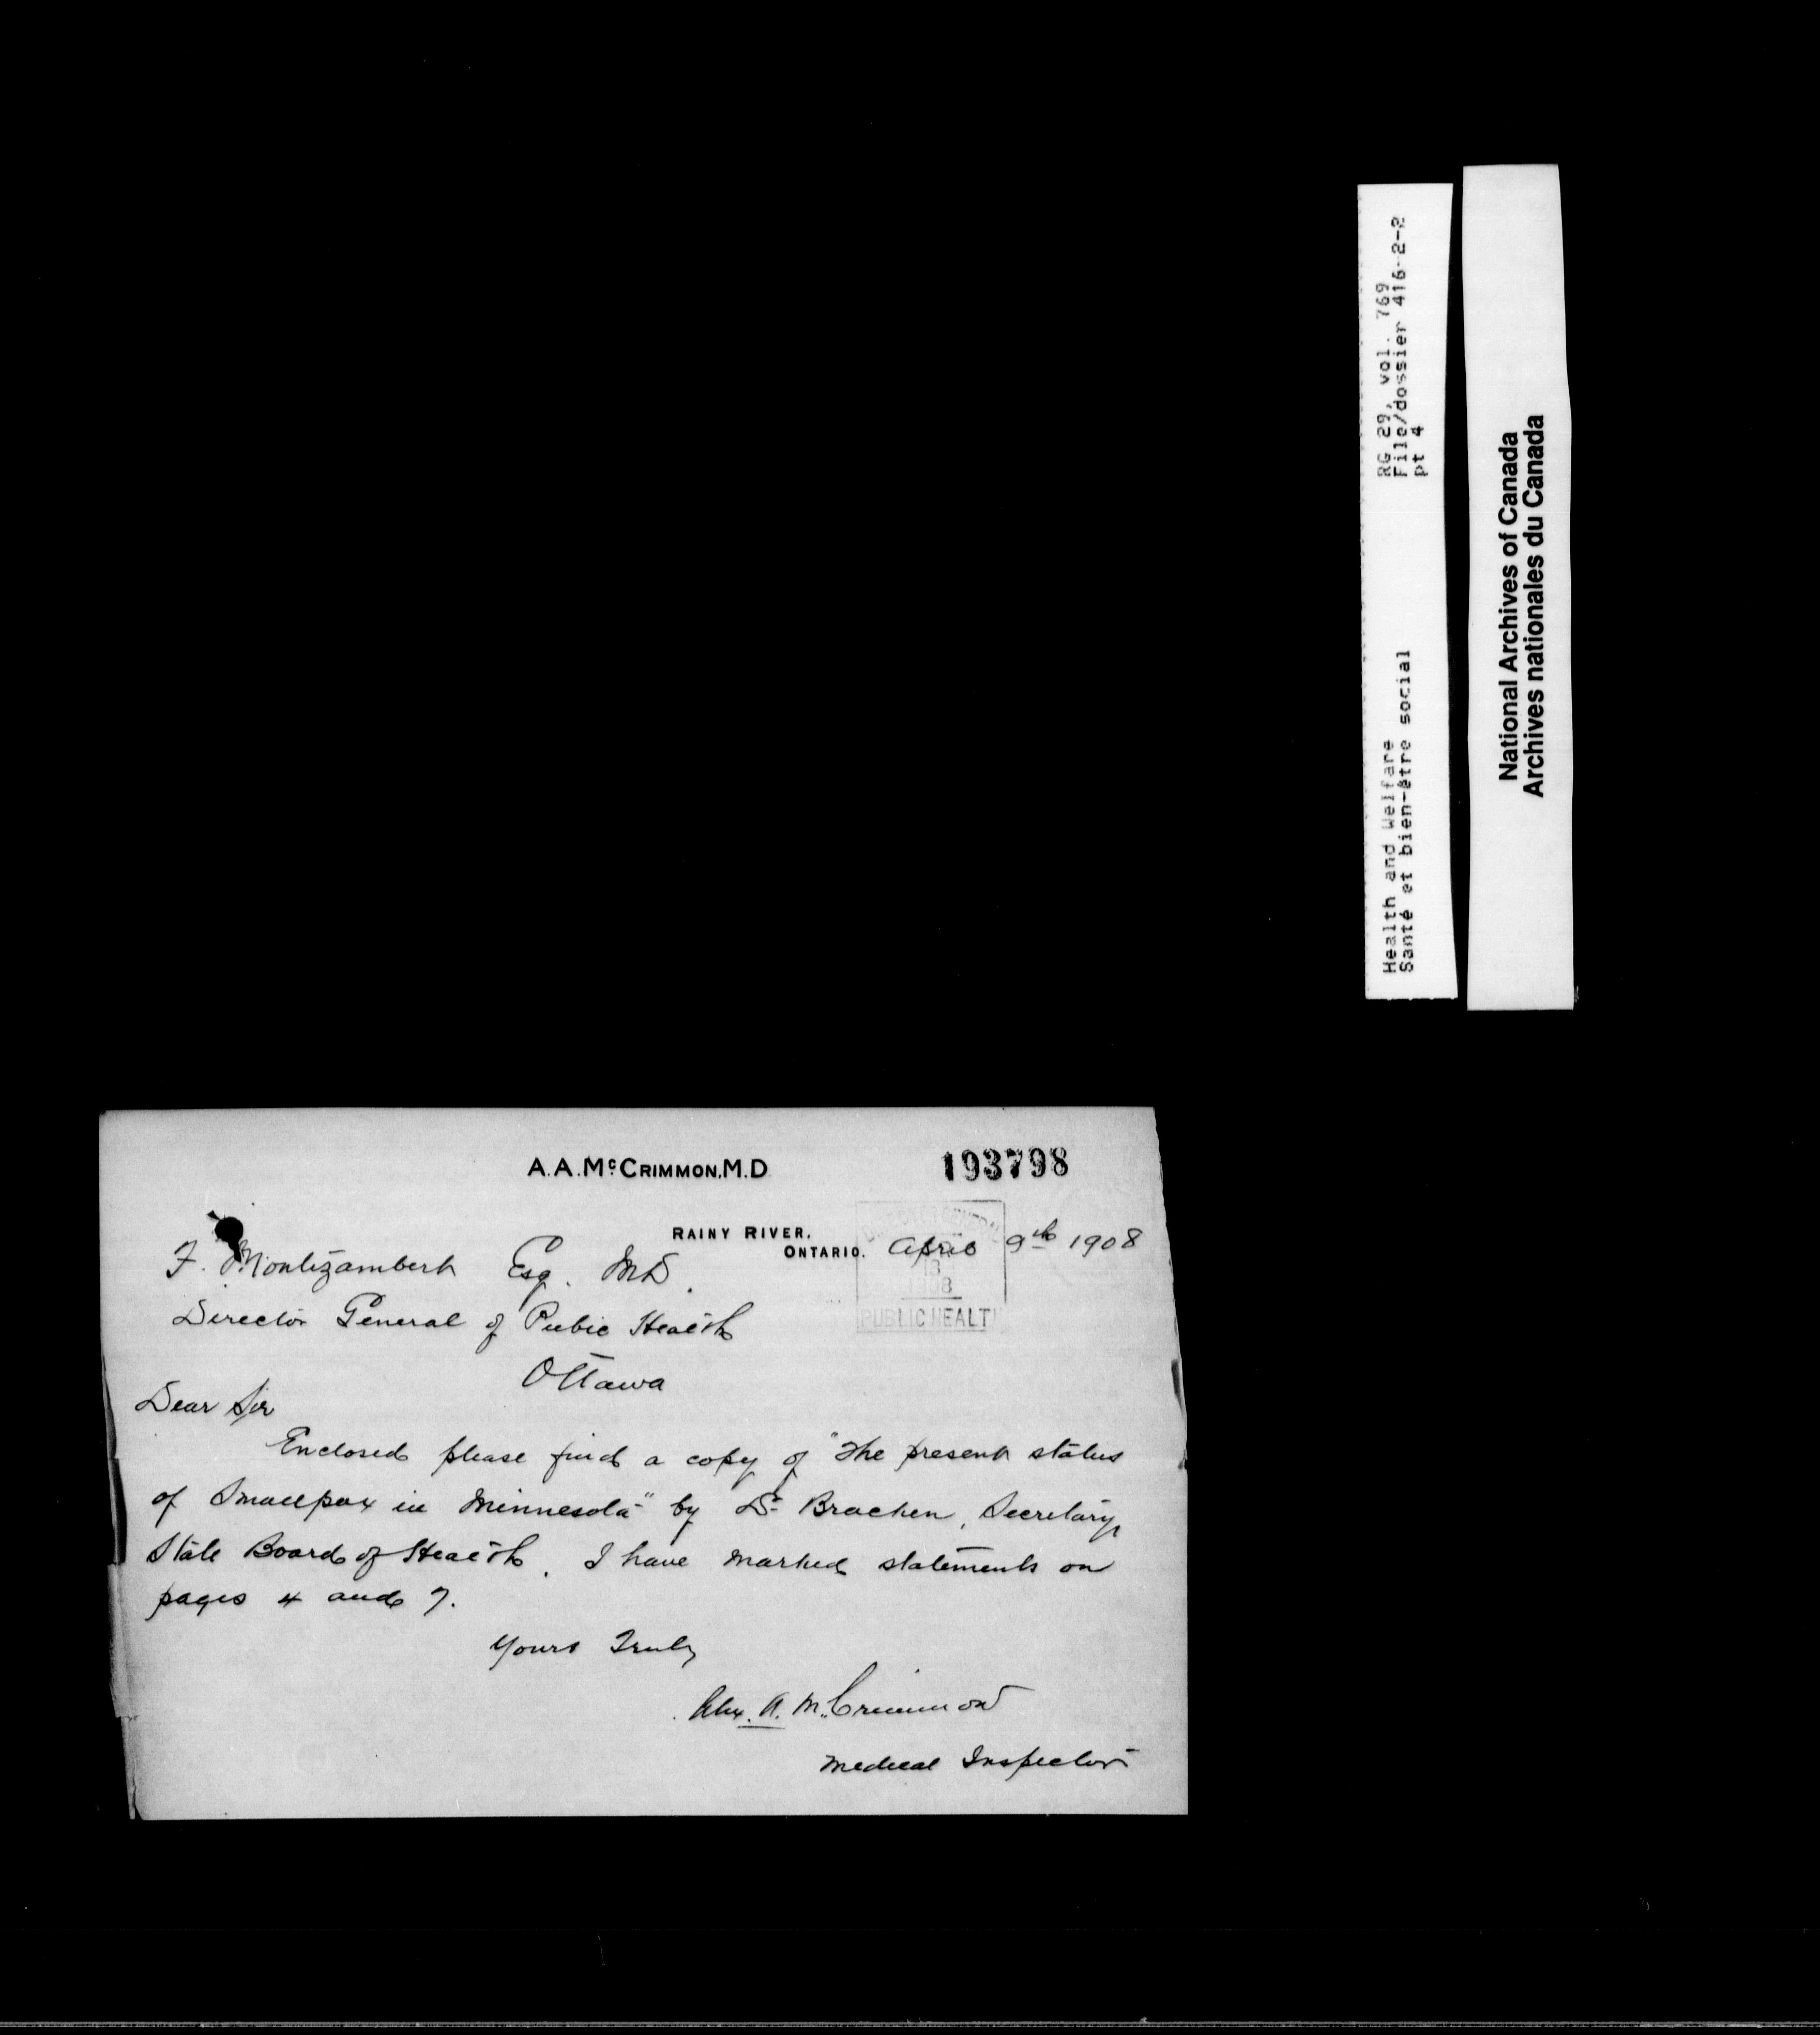 RG 29, vol. 769
File/dossier 416-2-2
pt 4
Health and Welfare
Santé et bien-être social
National Archives of Canada
Archives nationales du Canada
A. A. McCRIMMON, M.D
193798
RAINY RIVER,
ONTARIO. April 9th 1908
DIRECTOR GENERAL
13
1908
PUBLIC HEALTH
F. Montizambert Esq. M.D.
Director General of Public Health
Ottawa
Dear Sir
Enclosed please find a copy of "The present status
of Smallpox in Minnesota" by Dr Bracken, Secretary,
State Board of Health. I have marked statements on
pages 4 and 7.
Yours Truly
Alex. A. McCrimmon
Medical Inspector